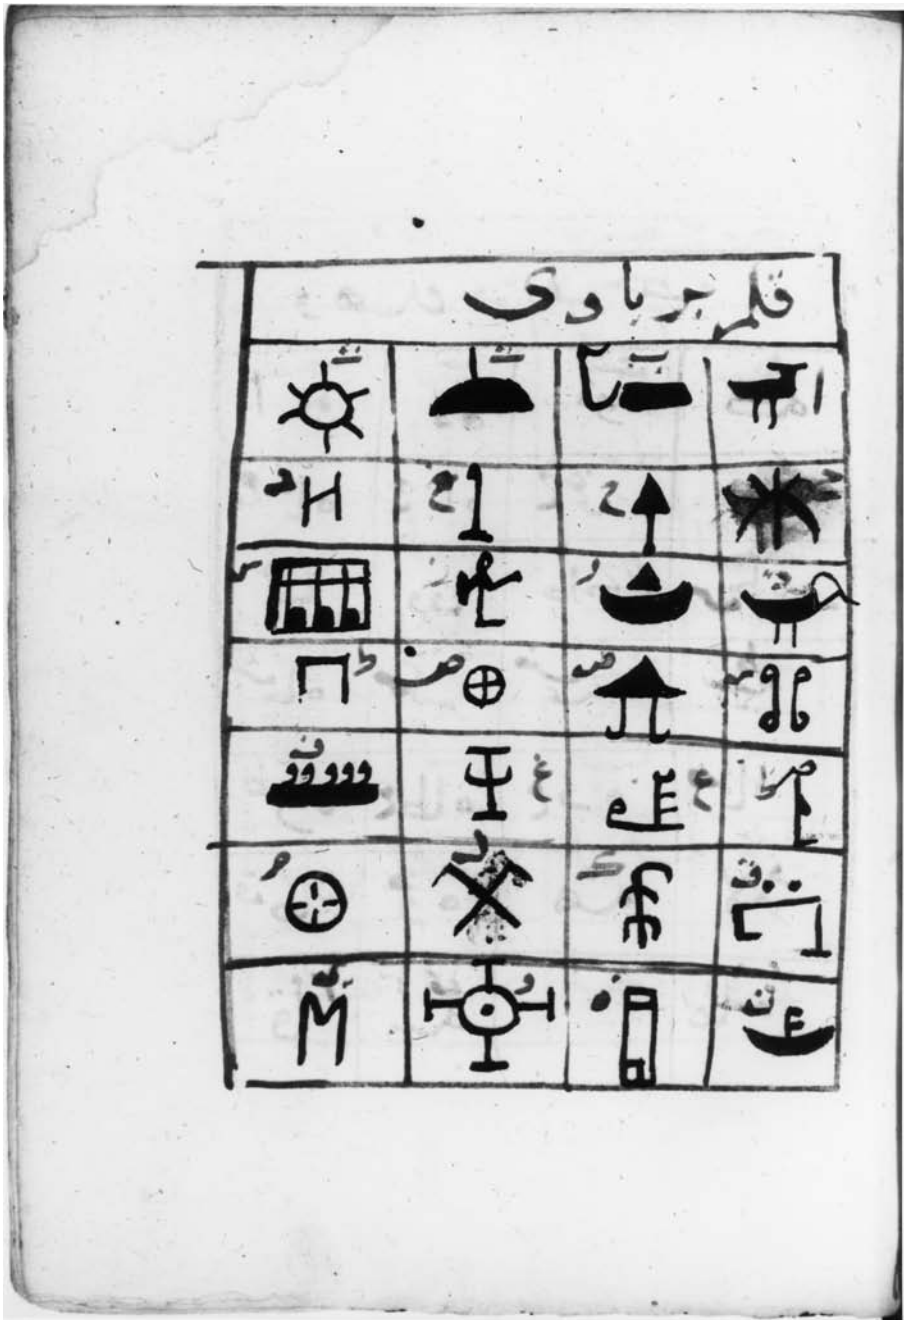 قلم برباوى
ا ب ت ث
ج ح خ د
ذ ر ز س
ش ص ض ط
ظ ع غ ف
ق ك ل م
ن ه و ي